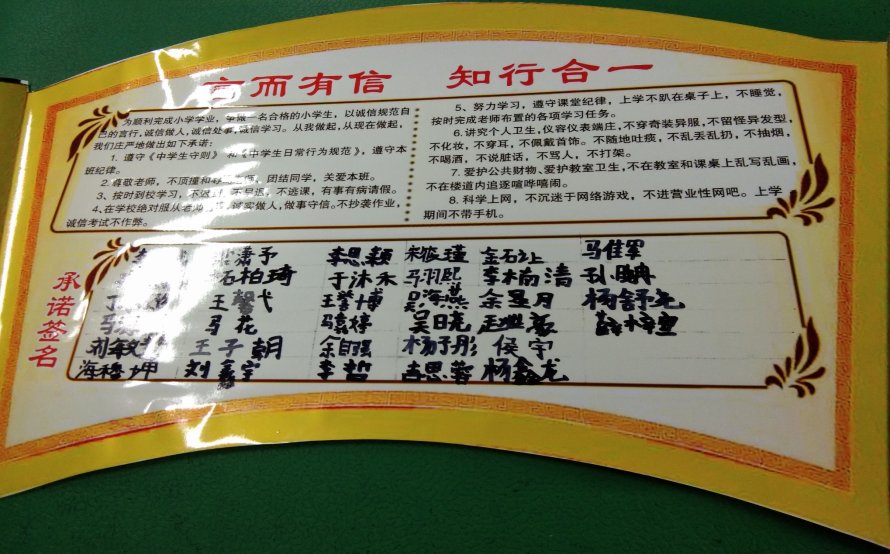 言而有信 知行合一
为顺利完成小学学业，争做一名合格的小学生，以诚信规范自
己的言行，诚信做人，诚信处事，诚信学习。从我做起，从现在做起，
我们庄严地做出如下承诺：
1. 遵守《中学生守则》和《中学生日常行为规范》，遵守本
班纪律。
2.尊敬老师，不顶撞和 团结同学，关爱本班。
3、按时到校学习，不迟到，不早退，不逃课，有事有病请假。
4、在学校绝对服从老师 诚实做人，做事守信。不抄袭作业，
诚信考试不作弊。
5、努力学习，遵守课堂纪律，上学不趴在桌子上，不睡觉，
按时完成老师布置的各项学习任务。
6.讲究个人卫生，仪容仪表端庄，不穿奇装异服，不留怪异发型，
不化妆，不穿耳，不佩戴首饰。不随地吐痰，不乱丢乱扔，不抽烟，
不喝酒，不说脏话，不骂人，不打架。
7. 爱护公共财物、爱护教室卫生，不在教室和课桌上乱写乱画，
不在楼道内追逐喧哗嘻闹。
8. 科学上网，不沉迷于网络游戏，不进营业性网吧。上学
期间不带手机。
承诺签名
李思颖 金石让 马佳军
石柏琦 于沐禾 马羽熙 李楠清
王馨弋 王誉博 吴海燕 余显月 杨舒允
马花 吴日亮
刘敏 王子朝 余自强 杨予彤 侯宇
海 刘鑫宇 李哲 古思蓉 杨鑫龙